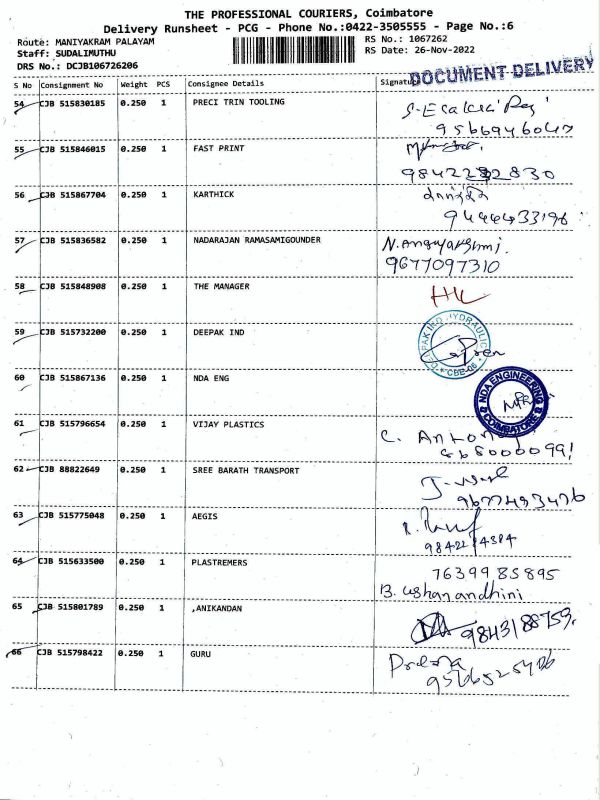 THE PROFESSIONAL COURIERS, Coimbatore
Delivery Runsheet - PCG - Phone No.:0422-3505555 - Page No.:6
Route: MANIYAKRAM PALAYAM
RS No.: 1067262
Staff: SUDALIMUTHU
RS Date: 26-Nov-2022
DRS No.: DCJB106726206
DOCUMENT DELIVERY
S No Consignment No Weight PCS Consignee Details Signature
54 CJB 515830185 0.250 1 PRECI TRIN TOOLING
55 CJB 515846015 0.250 1 FAST PRINT
56 CJB 515867704 0.250 1 KARTHICK
9444433196
57 CJB 515836582 0.250 1 NADARAJAN RAMASAMIGOUNDER N.Angayarkanni.
9677097310
58 CJB 515848908 0.250 1 THE MANAGER
59 CJB 515732200 0.250 1 DEEPAK IND
CBE-06
60 CJB 515867136 0.250 1 NDA ENG
NDA ENGINEERING
COIMBATORE
61 CJB 515796654 0.250 1 VIJAY PLASTICS
62 CJB 88822649 0.250 1 SREE BARATH TRANSPORT
63 CJB 515775048 0.250 1 AEGIS
64 CJB 515633500 0.250 1 PLASTREMERS 7639985895
B. ushanandhini
65 CJB 515801789 0.250 1 ,ANIKANDAN
9843188759.
66 CJB 515798422 0.250 1 GURU